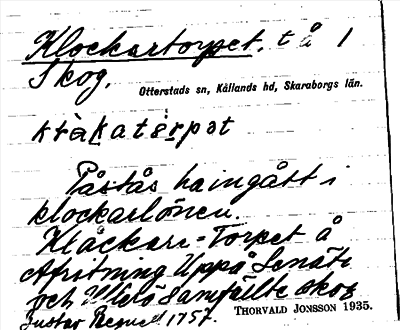 Klockartorpet. t å 1
Skog.
Otterstads sn, Kållands hd, Skaraborgs län.
Påstås ha ingått i
klockarlönen.
Klåckare-Torpet å
Afritning Uppå Senäte
och Ullerö Samfällte skog
Gustav 1757.
THORVALD JONSSON 1935.